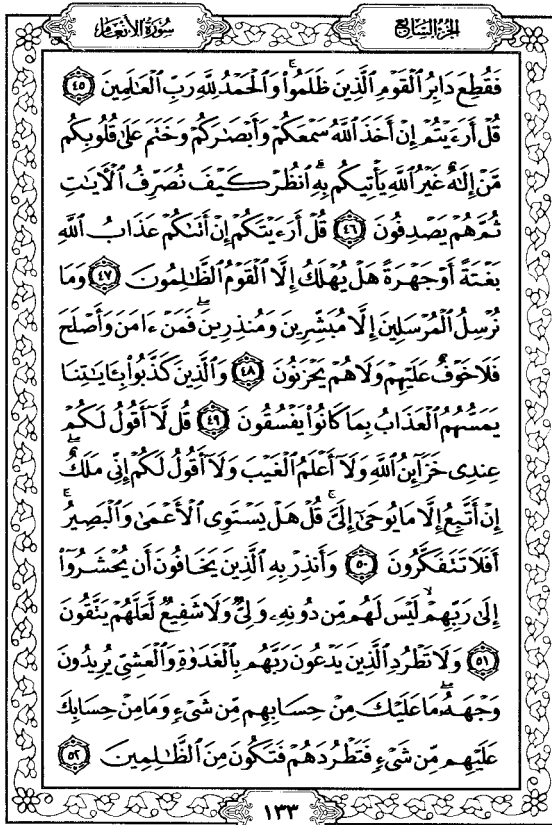 سُورَةُ الأَنْعَامِ
الجُزءُ السَّابِعُ
فَقُطِعَ دَابِرُ ٱلْقَوْمِ ٱلَّذِينَ ظَلَمُوا۟ ۚ وَٱلْحَمْدُ لِلَّهِ رَبِّ ٱلْعَٰلَمِينَ ٤٥
قُلْ أَرَءَيْتُمْ إِنْ أَخَذَ ٱللَّهُ سَمْعَكُمْ وَأَبْصَٰرَكُمْ وَخَتَمَ عَلَىٰ قُلُوبِكُم
مَّنْ إِلَٰهٌ غَيْرُ ٱللَّهِ يَأْتِيكُم بِهِ ۗ ٱنظُرْ كَيْفَ نُصَرِّفُ ٱلْءَايَٰتِ
ثُمَّ هُمْ يَصْدِفُونَ ٤٦ قُلْ أَرَءَيْتَكُمْ إِنْ أَتَىٰكُمْ عَذَابُ ٱللَّهِ
بَغْتَةً أَوْ جَهْرَةً هَلْ يُهْلَكُ إِلَّا ٱلْقَوْمُ ٱلظَّٰلِمُونَ ٤٧ وَمَا
نُرْسِلُ ٱلْمُرْسَلِينَ إِلَّا مُبَشِّرِينَ وَمُنذِرِينَ ۖ فَمَنْ ءَامَنَ وَأَصْلَحَ
فَلَا خَوْفٌ عَلَيْهِمْ وَلَا هُمْ يَحْزَنُونَ ٤٨ وَٱلَّذِينَ كَذَّبُوا۟ بِـَٔايَٰتِنَا
يَمَسُّهُمُ ٱلْعَذَابُ بِمَا كَانُوا۟ يَفْسُقُونَ ٤٩ قُل لَّآ أَقُولُ لَكُمْ
عِندِى خَزَآئِنُ ٱللَّهِ وَلَآ أَعْلَمُ ٱلْغَيْبَ وَلَآ أَقُولُ لَكُمْ إِنِّى مَلَكٌ ۖ
إِنْ أَتَّبِعُ إِلَّا مَا يُوحَىٰٓ إِلَىَّ ۚ قُلْ هَلْ يَسْتَوِى ٱلْأَعْمَىٰ وَٱلْبَصِيرُ ۚ
أَفَلَا تَتَفَكَّرُونَ ٥٠ وَأَنذِرْ بِهِ ٱلَّذِينَ يَخَافُونَ أَن يُحْشَرُوٓا۟
إِلَىٰ رَبِّهِمْ ۙ لَيْسَ لَهُم مِّن دُونِهِۦ وَلِىٌّ وَلَا شَفِيعٌ لَّعَلَّهُمْ يَتَّقُونَ
٥١ وَلَا تَطْرُدِ ٱلَّذِينَ يَدْعُونَ رَبَّهُم بِٱلْغَدَوٰةِ وَٱلْعَشِىِّ يُرِيدُونَ
وَجْهَهُۥ ۖ مَا عَلَيْكَ مِنْ حِسَابِهِم مِّن شَىْءٍ وَمَا مِنْ حِسَابِكَ
عَلَيْهِم مِّن شَىْءٍ فَتَطْرُدَهُمْ فَتَكُونَ مِنَ ٱلظَّٰلِمِينَ ٥٢
١٣٣